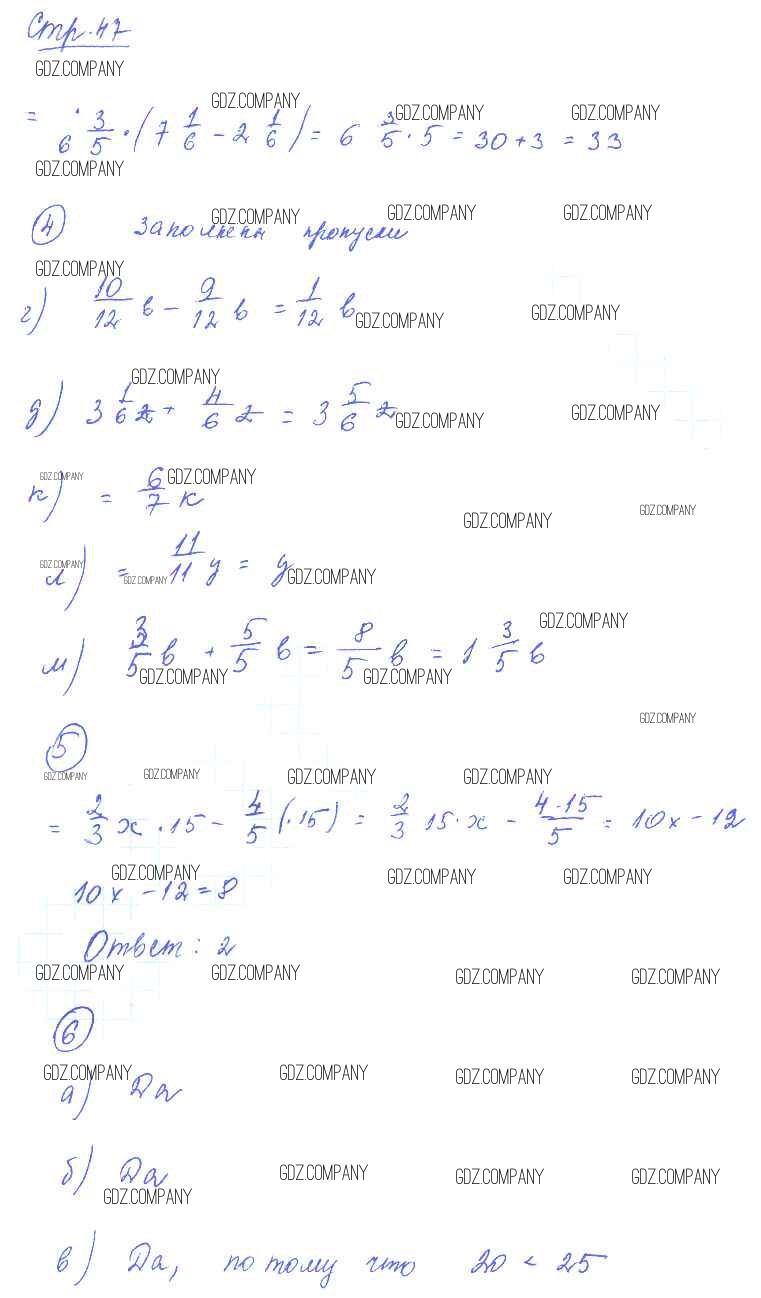 Стр. 47
GDZ.COMPANY
GDZ.COMPANY GDZ.COMPANY GDZ.COMPANY
= 6 3/5 · (7 1/6 − 2 1/6) = 6 3/5 · 5 = 30 + 3 = 33
GDZ.COMPANY
④ Заполнены пропуски
GDZ.COMPANY GDZ.COMPANY GDZ.COMPANY
GDZ.COMPANY
г) 10/12 в − 9/12 в = 1/12 в
GDZ.COMPANY GDZ.COMPANY
GDZ.COMPANY
д) 3 1/6 z + 4/6 z = 3 5/6 z
GDZ.COMPANY GDZ.COMPANY
GDZ.COMPANY GDZ.COMPANY
к) = 6/7 к
GDZ.COMPANY GDZ.COMPANY
л) = 11/11 y = y
GDZ.COMPANY GDZ.COMPANY GDZ.COMPANY
GDZ.COMPANY
м) 3/5 в + 5/5 в = 8/5 в = 1 3/5 в
GDZ.COMPANY GDZ.COMPANY
GDZ.COMPANY
⑤
GDZ.COMPANY GDZ.COMPANY GDZ.COMPANY GDZ.COMPANY
= 2/3 x · 15 − 4/5 (· 15) = 2/3 15 · x − 4·15/5 = 10x − 12
GDZ.COMPANY GDZ.COMPANY GDZ.COMPANY
10x − 12 = 8
Ответ: 2
GDZ.COMPANY GDZ.COMPANY GDZ.COMPANY GDZ.COMPANY
⑥
GDZ.COMPANY GDZ.COMPANY GDZ.COMPANY GDZ.COMPANY
а) Да
б) Да
GDZ.COMPANY GDZ.COMPANY GDZ.COMPANY
GDZ.COMPANY
в) Да, потому что 20 < 25